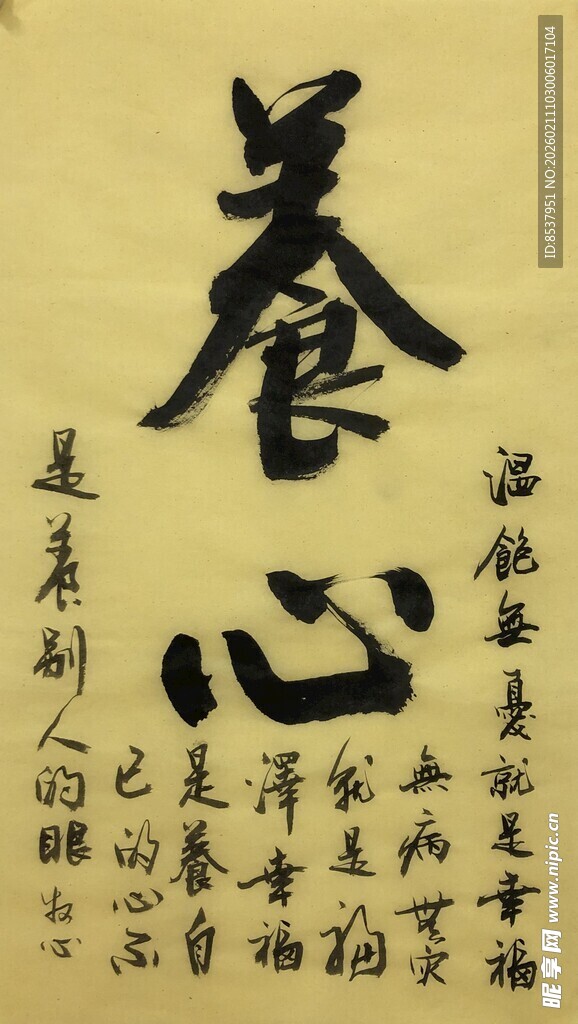 養心
温飽無憂就是幸福
無病無灾
就是福
澤幸福
是養自
己的心不
是養别人的眼 心
ID:8537951 NO:20260211103006017104
昵享网 www.nipic.cn